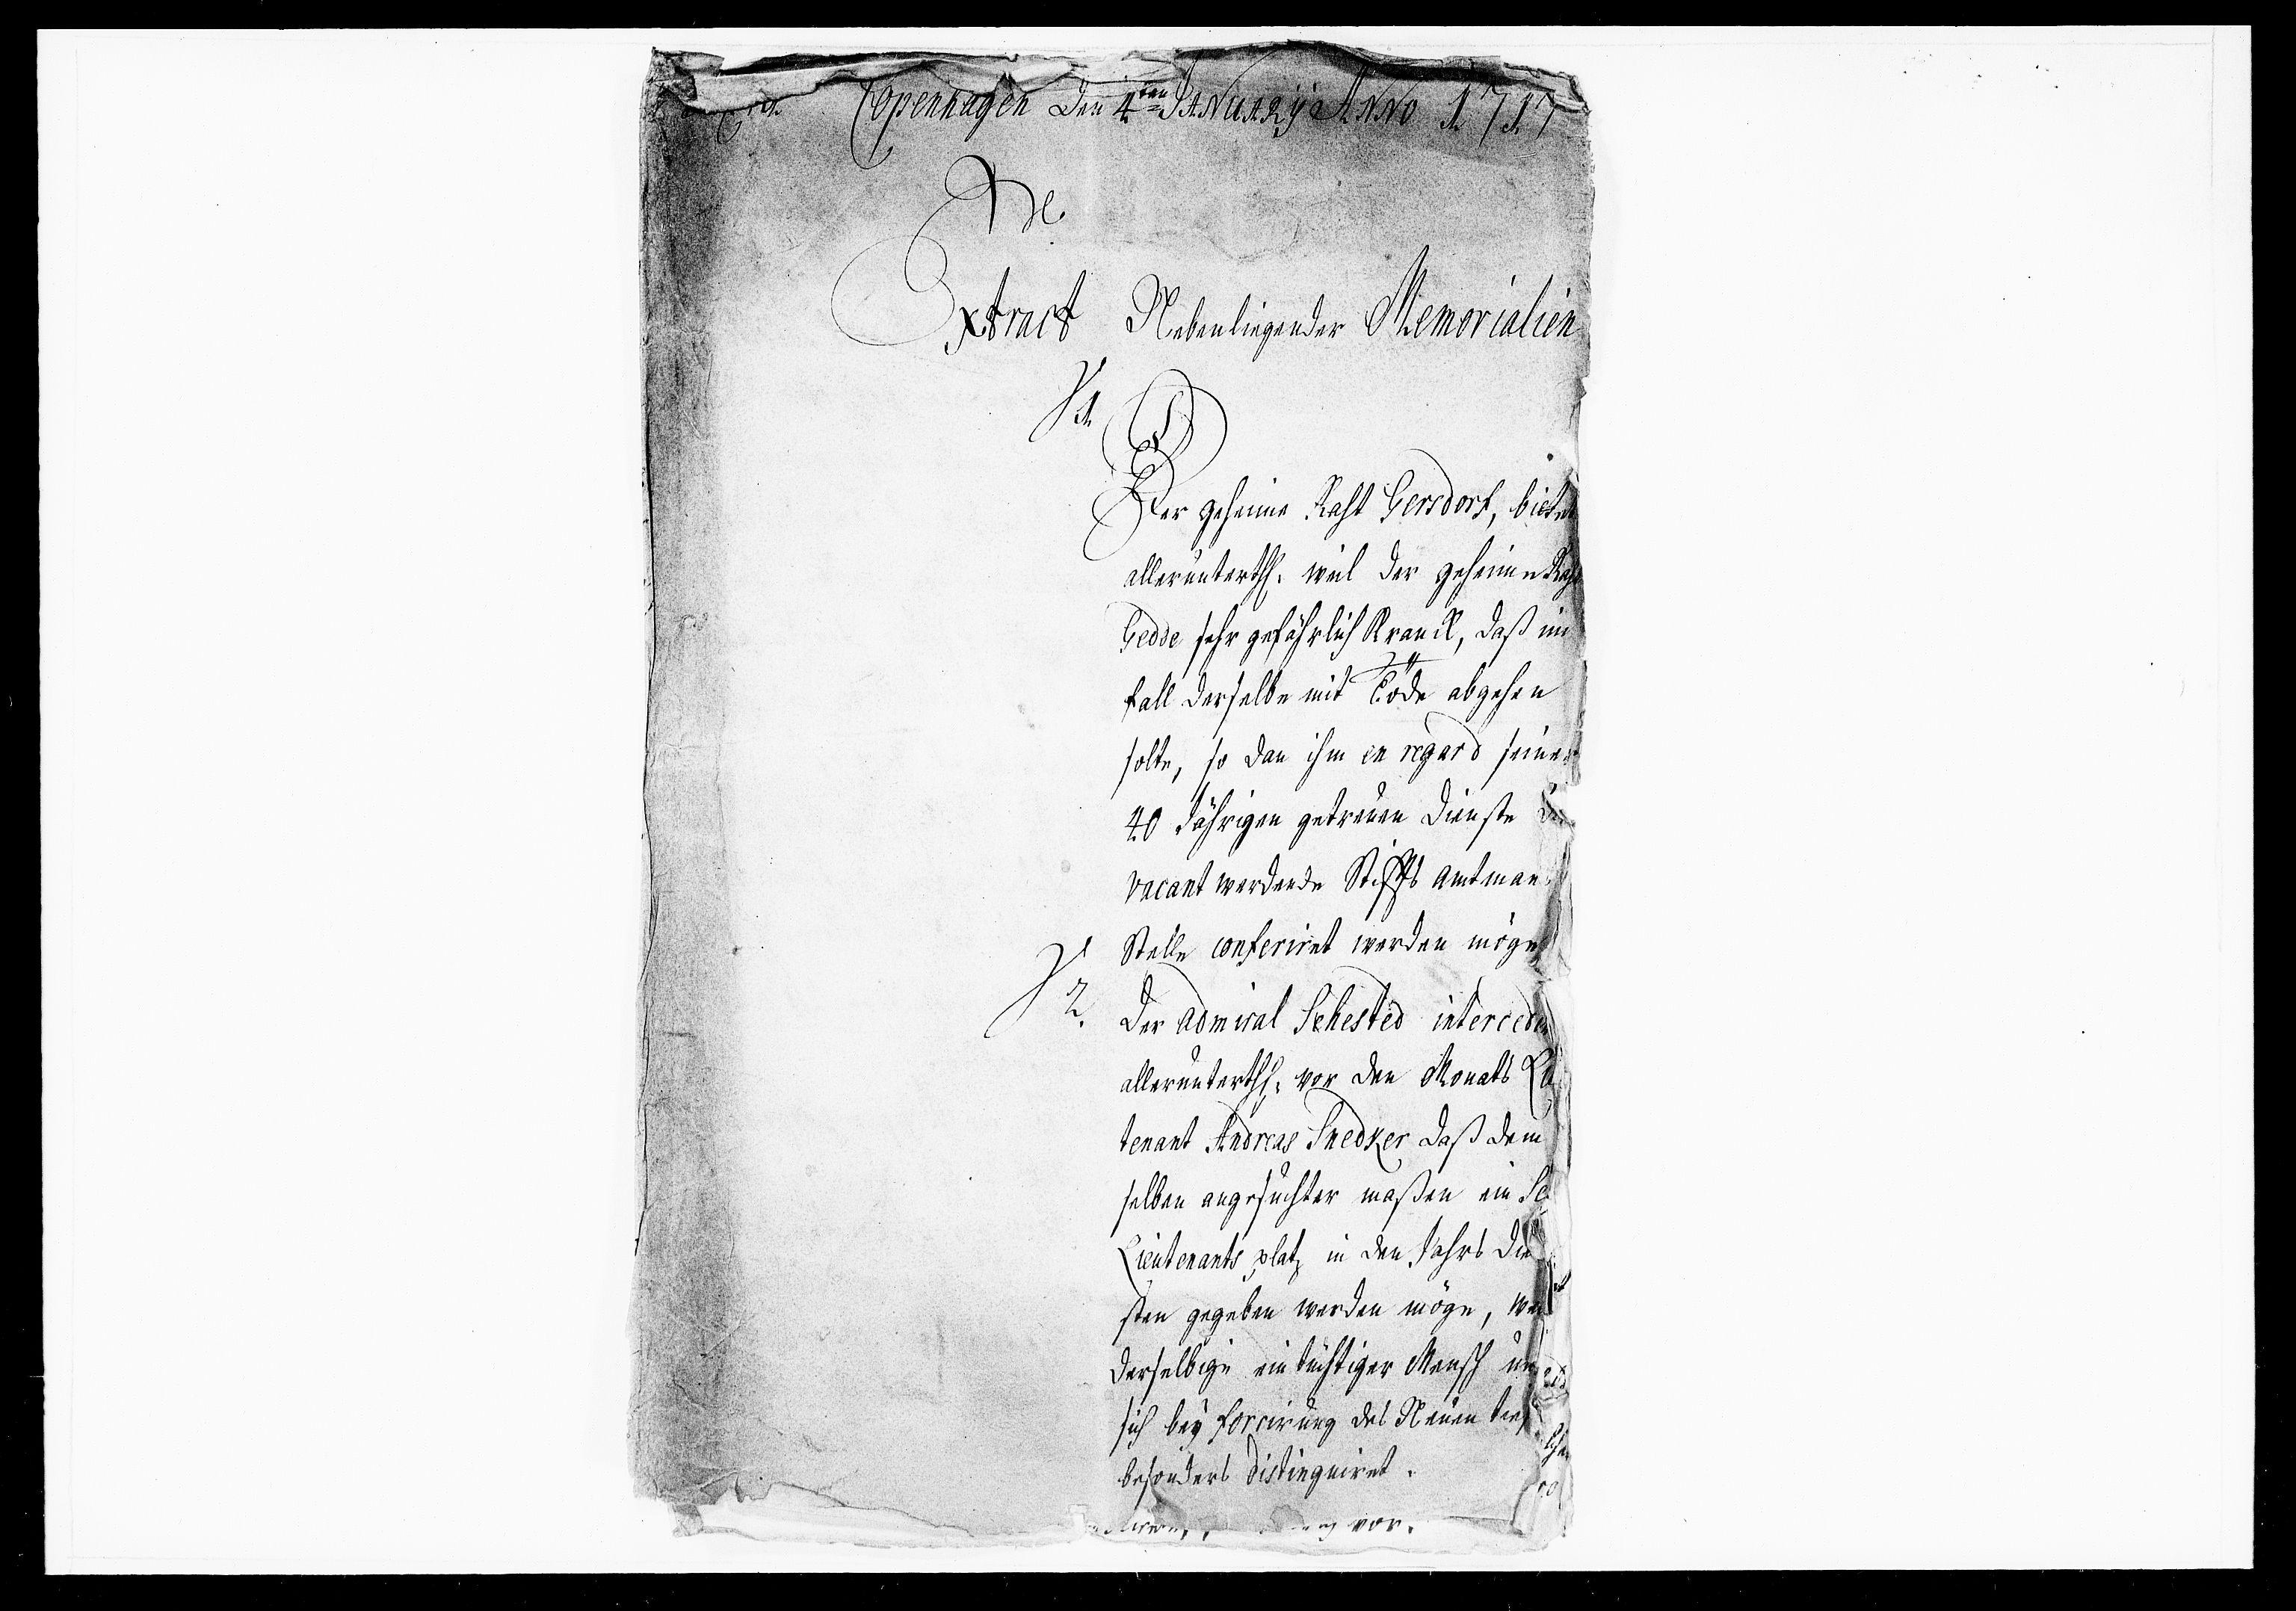 Copenhagen den 4ten January Anno 1717
Extract Nebenliegender Memorialien
1.
Der geheime Raht Gersdorf, bietet
allerunterth. weil der geheime Raht
Gedde sehr gefährlich Kranck, daß im
fall derselbe mit Tode abgehen
solte, so dan ihm en regard seiner
40 Jährigen getreuen Dienste
vacant werdende Stiffts Amtman
Stelle conferiret werden möge
2.
Der Admiral Sehested interced
allerunterth. vor den Monats Lü
tenant Andreas Snedker daß dem
selben angesuchter maßen ein Se
Lieutenants platz in den Jahrs Die
sten gegeben werden möge, we
derselbige ein tüchtiger Mensch un
sich bey forcirung des Neuen tief
besonders distinguiret.
vor.